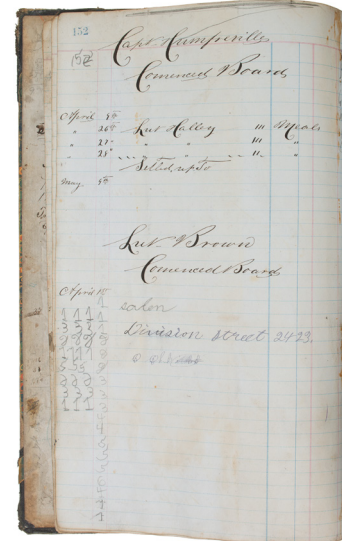 152
152
Capt Humfreville
Comenced Board
April 5th
" 26th Lut Halley III Meals
" 27th " " III "
" 28th " " II "
Settled up to
May 5th
Lut Brown
Comenced Board
April
salon
Division street 2423.